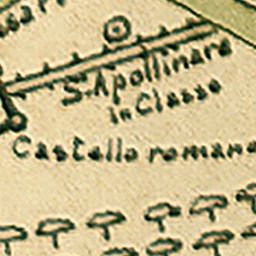 S. Apollinare
in Classe
Castello romano